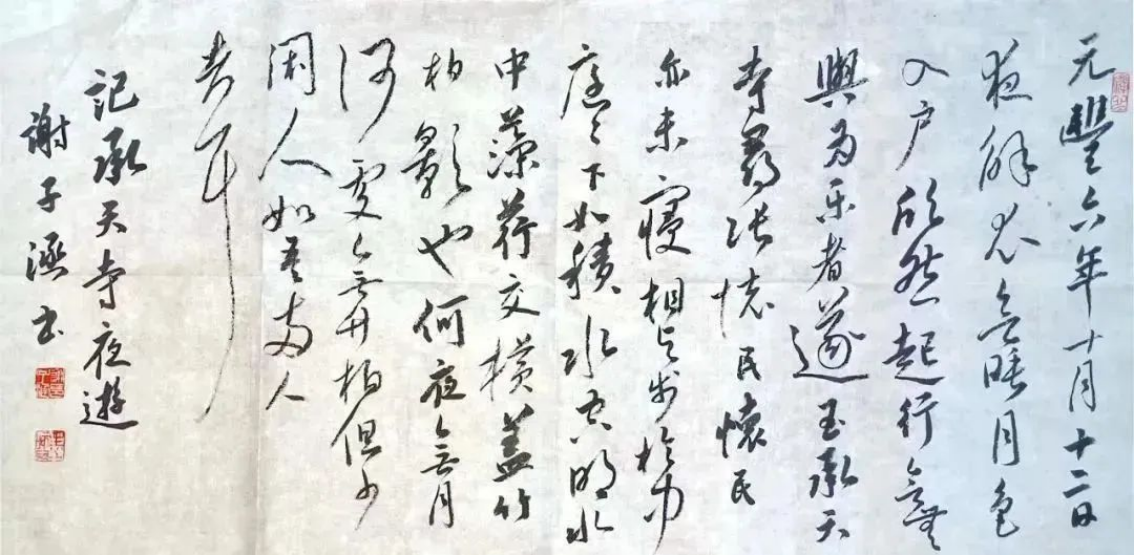 元豐六年十月十二日
夜解衣欲睡月色
入户欣然起行念無
與为乐者遂至承天
寺尋张怀民懷民
亦未寢相与步於中
庭庭下如積水空明水
中藻荇交橫蓋竹
柏影也何夜无月
何處无竹柏但少
閑人如吾两人
者耳
記承天寺夜遊
謝子
书